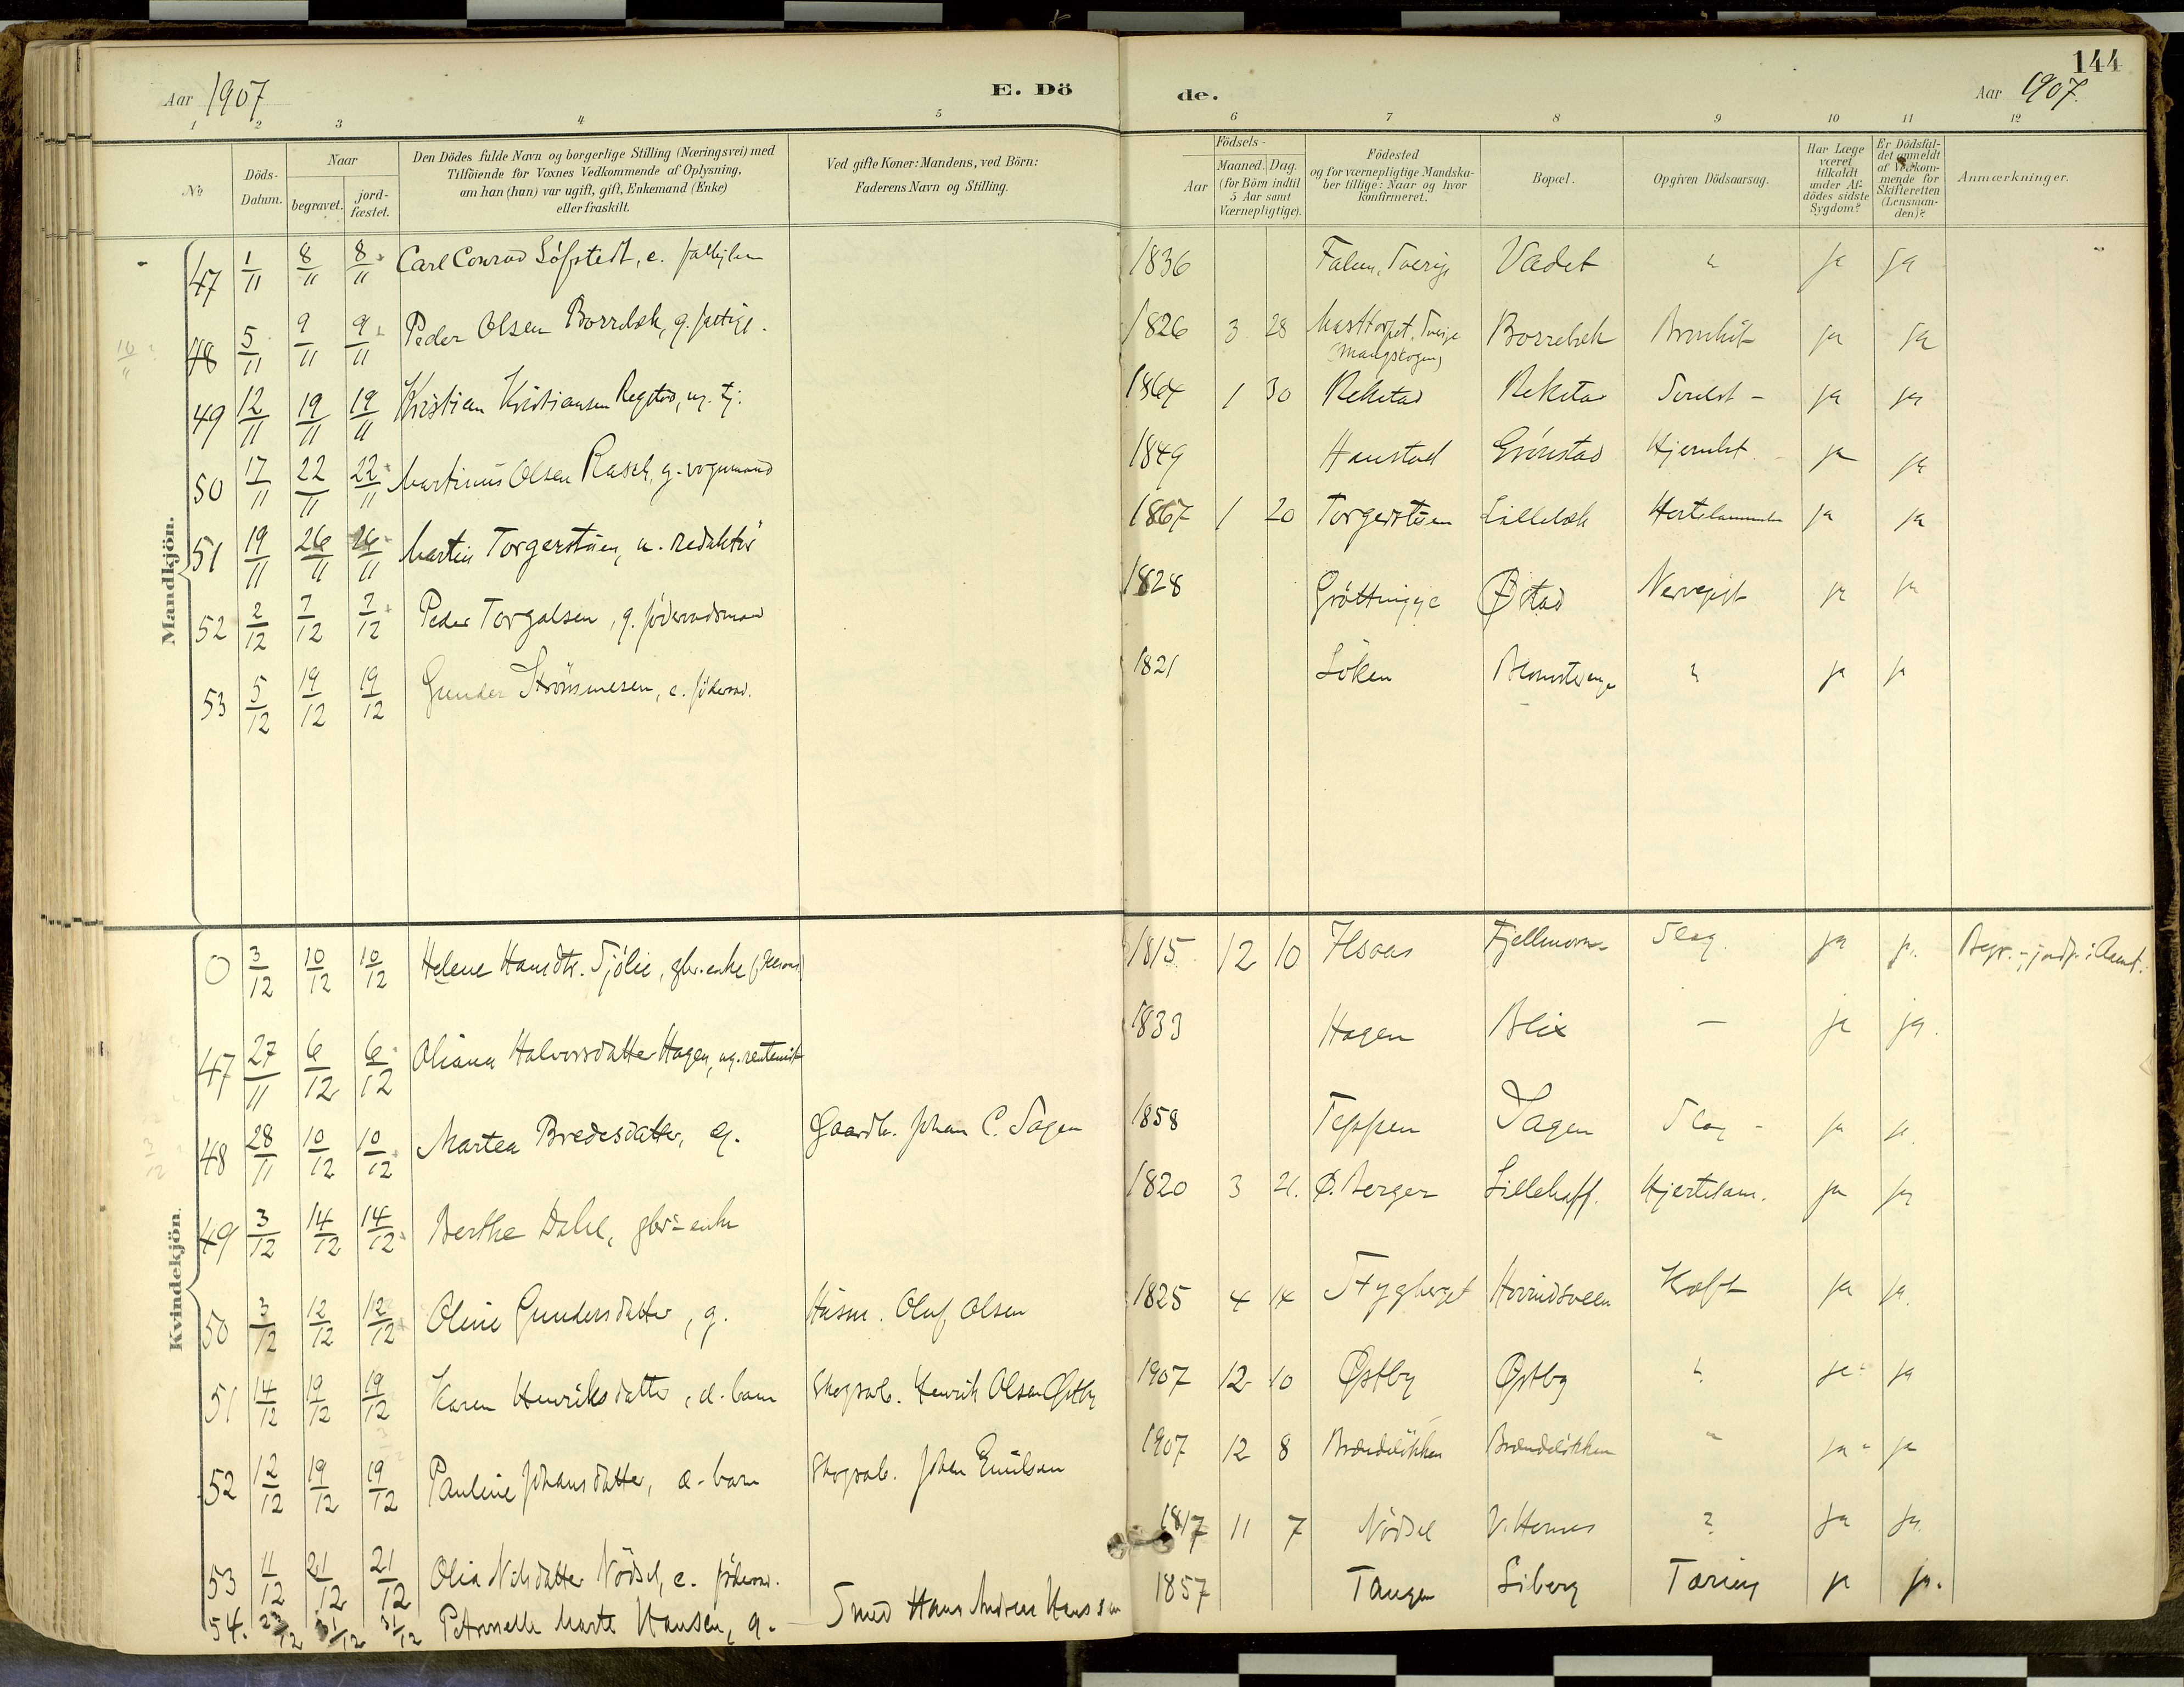 144
Aar 1907 E. Döde. Aar 1907.
1 2 3 4 5 6 7 8 9 10 11 12
No
Döds-Datum.
Naar
begravet.
jord-fæstet.
Den Dödes fulde Navn og borgerlige Stilling (Næringsvei) med
Tilföiende for Voxnes Vedkommende af Oplysning,
om han (hun) var ugift, gift, Enkemand (Enke)
eller fraskilt.
Ved gifte Koner: Mandens, ved Börn:
Faderens Navn og Stilling.
Födsels-
Aar
Maaned. Dag.
(for Börn indtil
5 Aar samt
Værnepligtige).
Födested
og for værnepligtige Mandska-
ber tillige: Naar og hvor
konfirmeret.
Bopæl.
Opgiven Dödsaarsag.
Har Læge
været
tilkaldt
under Af-
dödes sidste
Sygdom?
Er Dödsfal-
det anmeldt
af Vedkom-
mende for
Skifteretten
(Lensman-
den)?
Anmærkninger.
Mandkjön.
47 1/11 8/11 8/11 Carl Conrad Löfstedt, e. 1836 Falun, Sverige Vadet " ja ja
48 5/11 9/11 9/11 Peder Olsen Borrebæk, g. 1826 3 28 Sverige Borrebæk Bronkit ja ja
(Mangskogen)
49 12/11 19/11 19/11 Kristian Kristiansen Regstad, ug. tj. 1864 1 30 Rekstad Rekstad ja ja
50 17/11 22/11 22/11 Martinus Olsen Rasch, g. vognmand 1849 Haustad Grönstad ja ja
51 19/11 26/11 26/11 Martin Torgerstuen, u. redaktör 1867 1 20 Torgerstuen Lillebæk ja ja
52 2/12 7/12 7/12 Peder Torgalsen, g. föderaadsmand 1828 Gröttingge Östad ja ja
53 5/12 19/12 19/12 Gunder Strönsmesen, e. föderaad. 1821 Löken " ja ja
Kvindekjön.
0 3/12 10/12 10/12 Helene Hansdtr. Sjölie, gbr. enke 1815 12 10 Ilsaas Slag. ja ja
47 27/11 6/12 6/12 Oliana Halvorsdatter Hagen, ug. rentenist 1833 Hagen Blix — ja ja.
48 28/11 10/12 10/12 Martea Bredesdatter, g. Gaardb. Johan C. Sagen 1858 Teppen Sagen Slag - ja ja.
49 3/12 14/12 14/12 Berthe Dahl, gbr. enke 1820 3 21. Ö. Berger Lillehaff. Hjertelam. ja ja
50 3/12 12/12 12/12 Oline Gundersdatter, g. Husm. Oluf Olsen 1825 4 14 Stygberget Hovindsveen Kræft ja ja.
51 14/12 19/12 19/12 Karen Henriksdatter, æ. barn Skogsarb. Henrik Olsen Östby 1907 12 10 Östby Östby " ja ja
52 12/12 19/12 19/12 Pauline Johansdatter, æ. barn Skogsarb. Johan Emilsen 1907 12 8 Brændelökken Brændelökken " ja ja
53 11/12 21/12 21/12 Olia Nilsdatter Nödsel, e. föderaad. 1817 11 7 Nödsel V. Hernes ? ja ja
54. 23/12 31/12 31/12 Petronelle Marte Hansen, g. Smed Hans Andreas Hanssen 1857 Tangen Liberg Tæring ja ja.